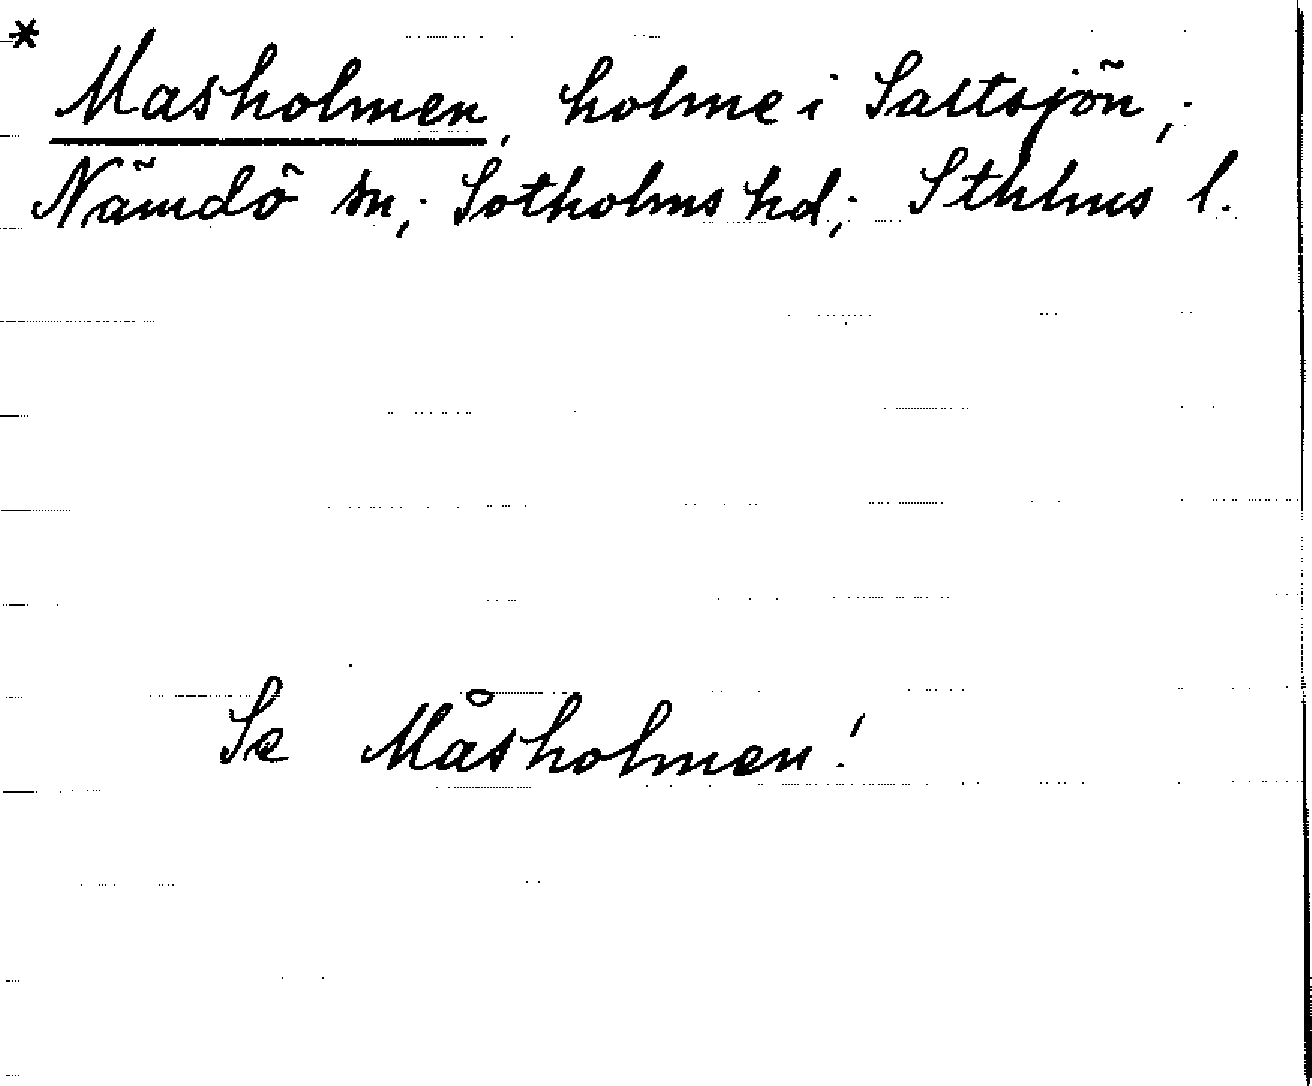 *
Masholmen, holme i Saltsjön;
Nämdö sn; Sotholms hd; Sthlms l.
Se Måsholmen!